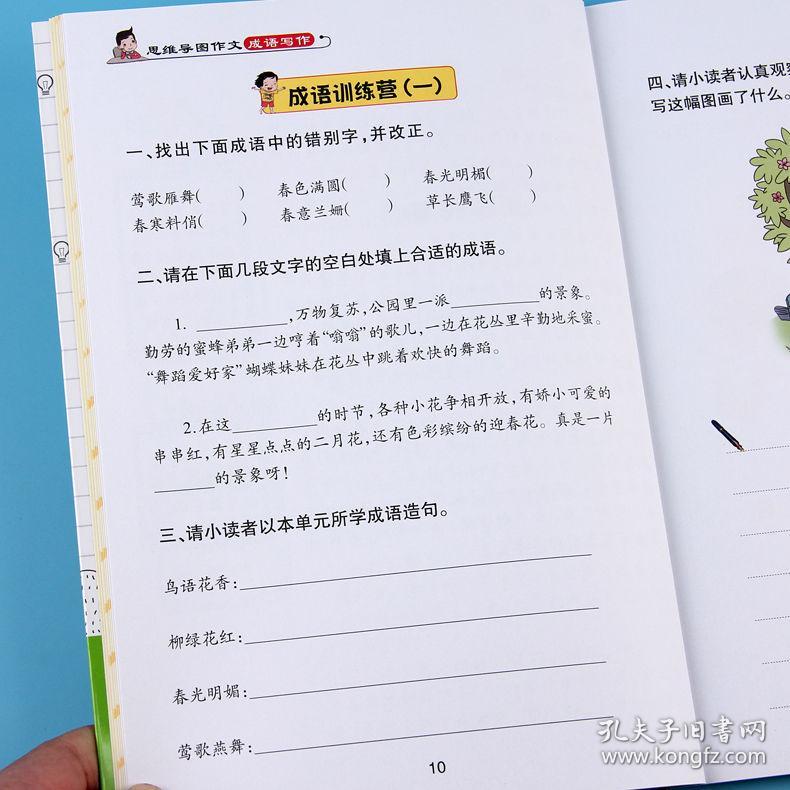 思维导图作文 成语写作
成语训练营(一)
一、找出下面成语中的错别字,并改正。
莺歌雁舞(　　) 春色满圆(　　) 春光明楣(　　)
春寒料俏(　　) 春意兰姗(　　) 草长鹰飞(　　)
二、请在下面几段文字的空白处填上合适的成语。
1. ________,万物复苏,公园里一派________的景象。
勤劳的蜜蜂弟弟一边哼着“嗡嗡”的歌儿,一边在花丛里辛勤地采蜜。
“舞蹈爱好家”蝴蝶妹妹在花丛中跳着欢快的舞蹈。
2.在这________的时节,各种小花争相开放,有娇小可爱的
串串红,有星星点点的二月花,还有色彩缤纷的迎春花。真是一片
______的景象呀!
三、请小读者以本单元所学成语造句。
鸟语花香:
柳绿花红:
春光明媚:
莺歌燕舞:
10
四、请小读者认真观
写这幅图画了什么。
孔夫子旧书网
www.kongfz.com